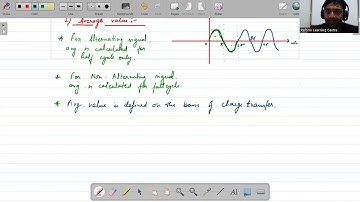 2) Average value :-
* For Alternating signal,
avg is calculated for
half cycle only.
* For Non-Alternating signal,
avg is calculated for full cycle
* Avg. value is defined on the basis of charge transfer.
Learning Centre